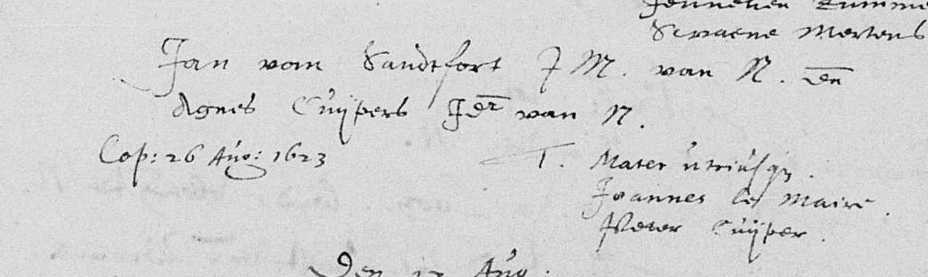 Jennelien
Swaene Mertens
Jan vom Sandtfort J M. van N. en
Agnes Cuijpers Jer van N.
Cop: 26 Aug: 1623
T. Mater utriusq.
Joannes le Maire.
Peter Cuijper.
Den 27 Aug.